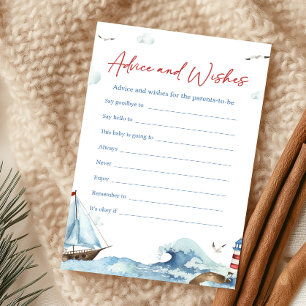 Advice and Wishes
Advice and wishes for the parents-to-be
Say goodbye to
Say hello to
This baby is going to
Always
Never
Enjoy
Remember to
It's okay if